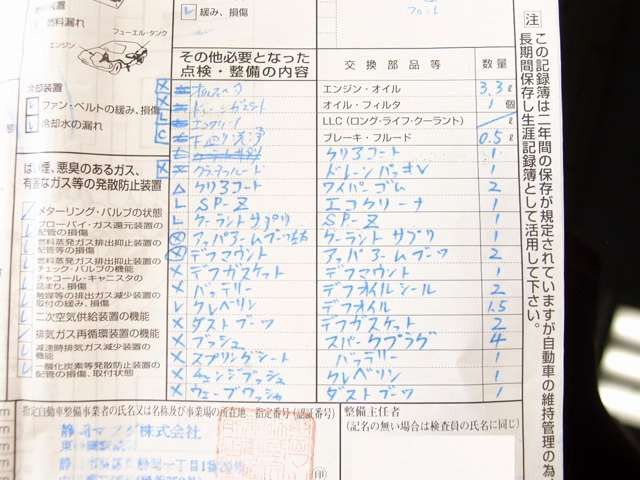 緩み、損傷
燃料漏れ
フューエル・タンク
エンジン
冷却装置
ファン・ベルトの緩み、損傷
冷却水の漏れ
ばい煙、悪臭のあるガス、
有害なガス等の発散防止装置
メターリング・バルブの状態
ブローバイ・ガス還元装置の
配管の損傷
燃料蒸発ガス排出抑止装置の
配管等の損傷
燃料蒸発ガス排出抑止装置の
チェック・バルブの機能
チャコール・キャニスタの
詰まり、損傷
触媒等の排出ガス減少装置の
取付の緩み、損傷
二次空気供給装置の機能
排気ガス再循環装置の機能
減速時排気ガス減少装置の
機能
一酸化炭素等発散防止装置の
配管の損傷、取付状態
その他必要となった
点検・整備の内容
交換部品等
数量
エンジン・オイル 3.3 ℓ
オイル・フィルタ 1 個
LLC(ロング・ライフ・クーラント) ℓ
ブレーキ・フルード 0.5 ℓ
下廻り洗浄
クリアコート 1
ドレーンパッキン 1
△ クリアコート ワイパーゴム 2
L SP-Z エコクリーナ 1
L クーラントサプリ SP-Z 1
クーラントサプリ 1
デフマウント アッパアームブーツ 2
× デフガスケット デフマウント 1
× バッテリー デフオイルシール 2
L クレベリン デフオイル 1.5
× ダストブーツ デフガスケット 2
× ブッシュ スパークプラグ 4
× スプリングシート バッテリー 1
× チェンジブッシュ クレベリン 1
× ウェーブワッシャ ダストブーツ 1
指定自動車整備事業者の氏名又は名称及び事業場の所在地 指定番号(認証番号)
整備主任者
(記名の無い場合は検査員の氏名に同じ)
株式会社
(印)
注
この記録簿は二年間の保存が規定されていますが自動車の維持管理の為、
長期間保存し生涯記録簿として活用して下さい。